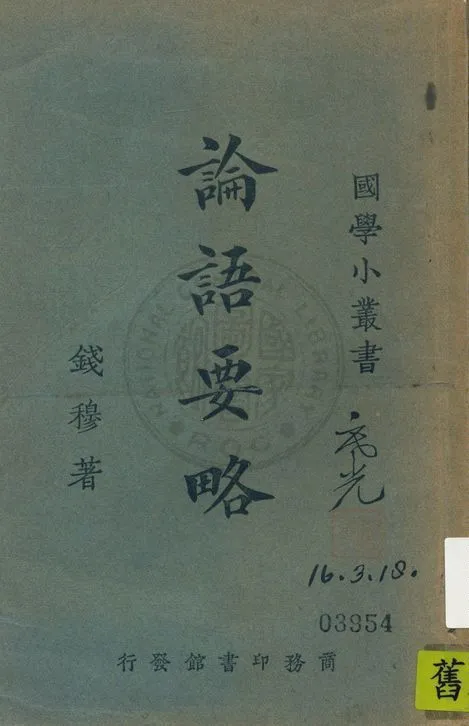 國學小叢書
光
16.3.18.
03354
論語要略
錢穆著
商務印書館發行
舊
NATIONAL CENTRAL LIBRARY
ROC